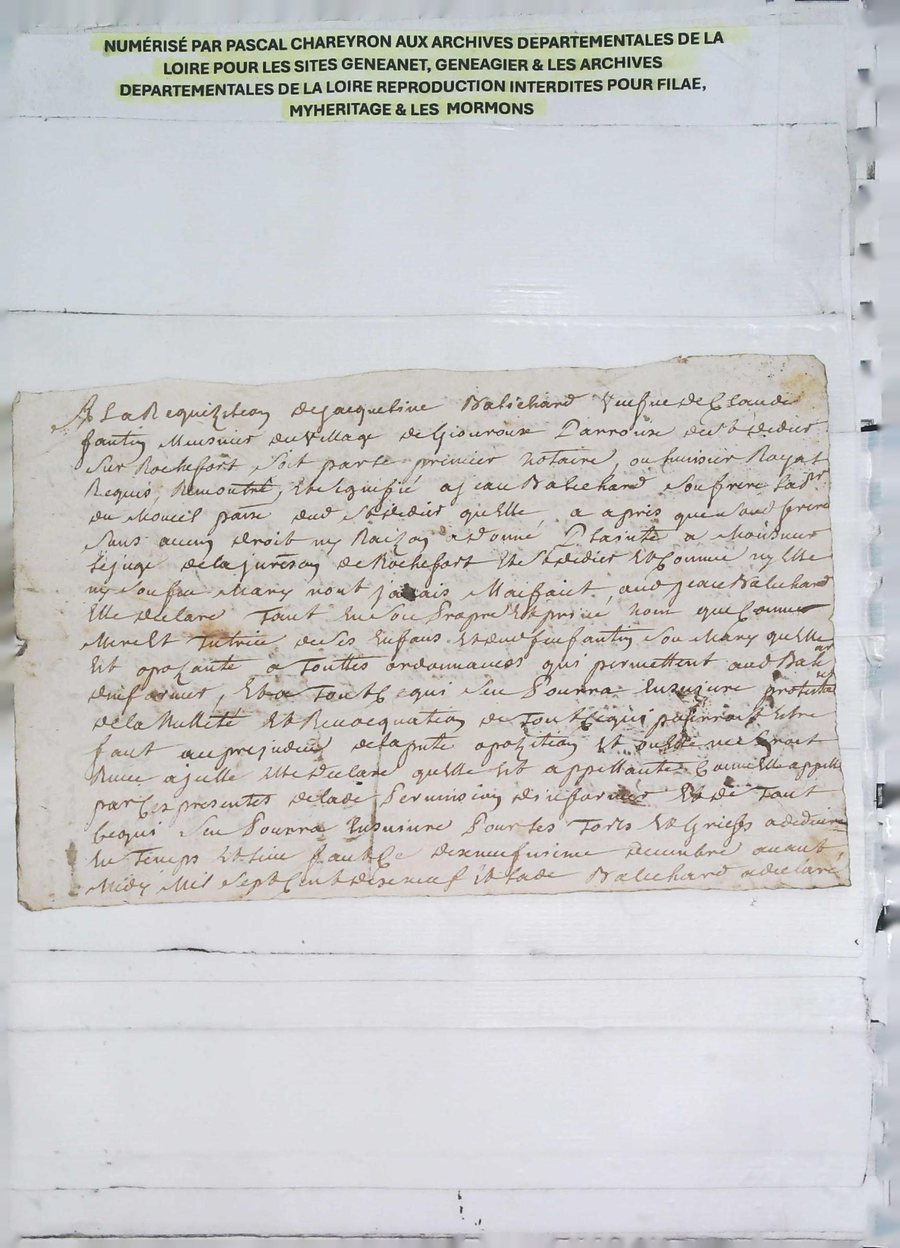 NUMÉRISÉ PAR PASCAL CHAREYRON AUX ARCHIVES DEPARTEMENTALES DE LA
LOIRE POUR LES SITES GENEANET, GENEAGIER & LES ARCHIVES
DEPARTEMENTALES DE LA LOIRE REPRODUCTION INTERDITES POUR FILAE,
MYHERITAGE & LES MORMONS
A La Requizition de Jacqueline Balichard Veufue de Claude
fantin Meusnier du Village de Giouroux Parroisse de St didier
Sur Rochefort Soit par le premier notaire ou huissier Royal
Requis, Remontré, Et Signifié a jean Balichard Son frere
du Moncel paroisse dud St didier quelle a apris que Sond frere
Sans aucun droit ny Raizon a donné Plainte a Monsieur
le juge de la jurison de Rochefort Et St didier Et Comme ny Elle
ny Son feu Mary nont jamais Malfait aud jean Balichard
Elle declare tant En Son Propre Et privé nom que Comme
Mere Et Tutrice de Ses Enfans Et dud feu fantin Son Mary quelle
Est opozante a Touttes ordonnances qui permettent aud Bali
dinformer, Et a Tout Ce qui Sen Pourra Ensuiure proteste
de la Nullité Et Revocquation de Tout Ce qui pourroit Estre
fait au prejudice de la pnte opozition Et ou
a jcelle Elle declare quelle Est appellante Comme Elle appelle
par Ces presentes de lade Permission dinformer Et de Tout
Ce qui Sen Pourra Ensuiure Pour les Torts Et Griefs a deduire
En Temps Et Lieu fait Ce dixneufuieme decembre auant
Midy Mil Sept Cent dixneuf Et lade Balichard a declaré